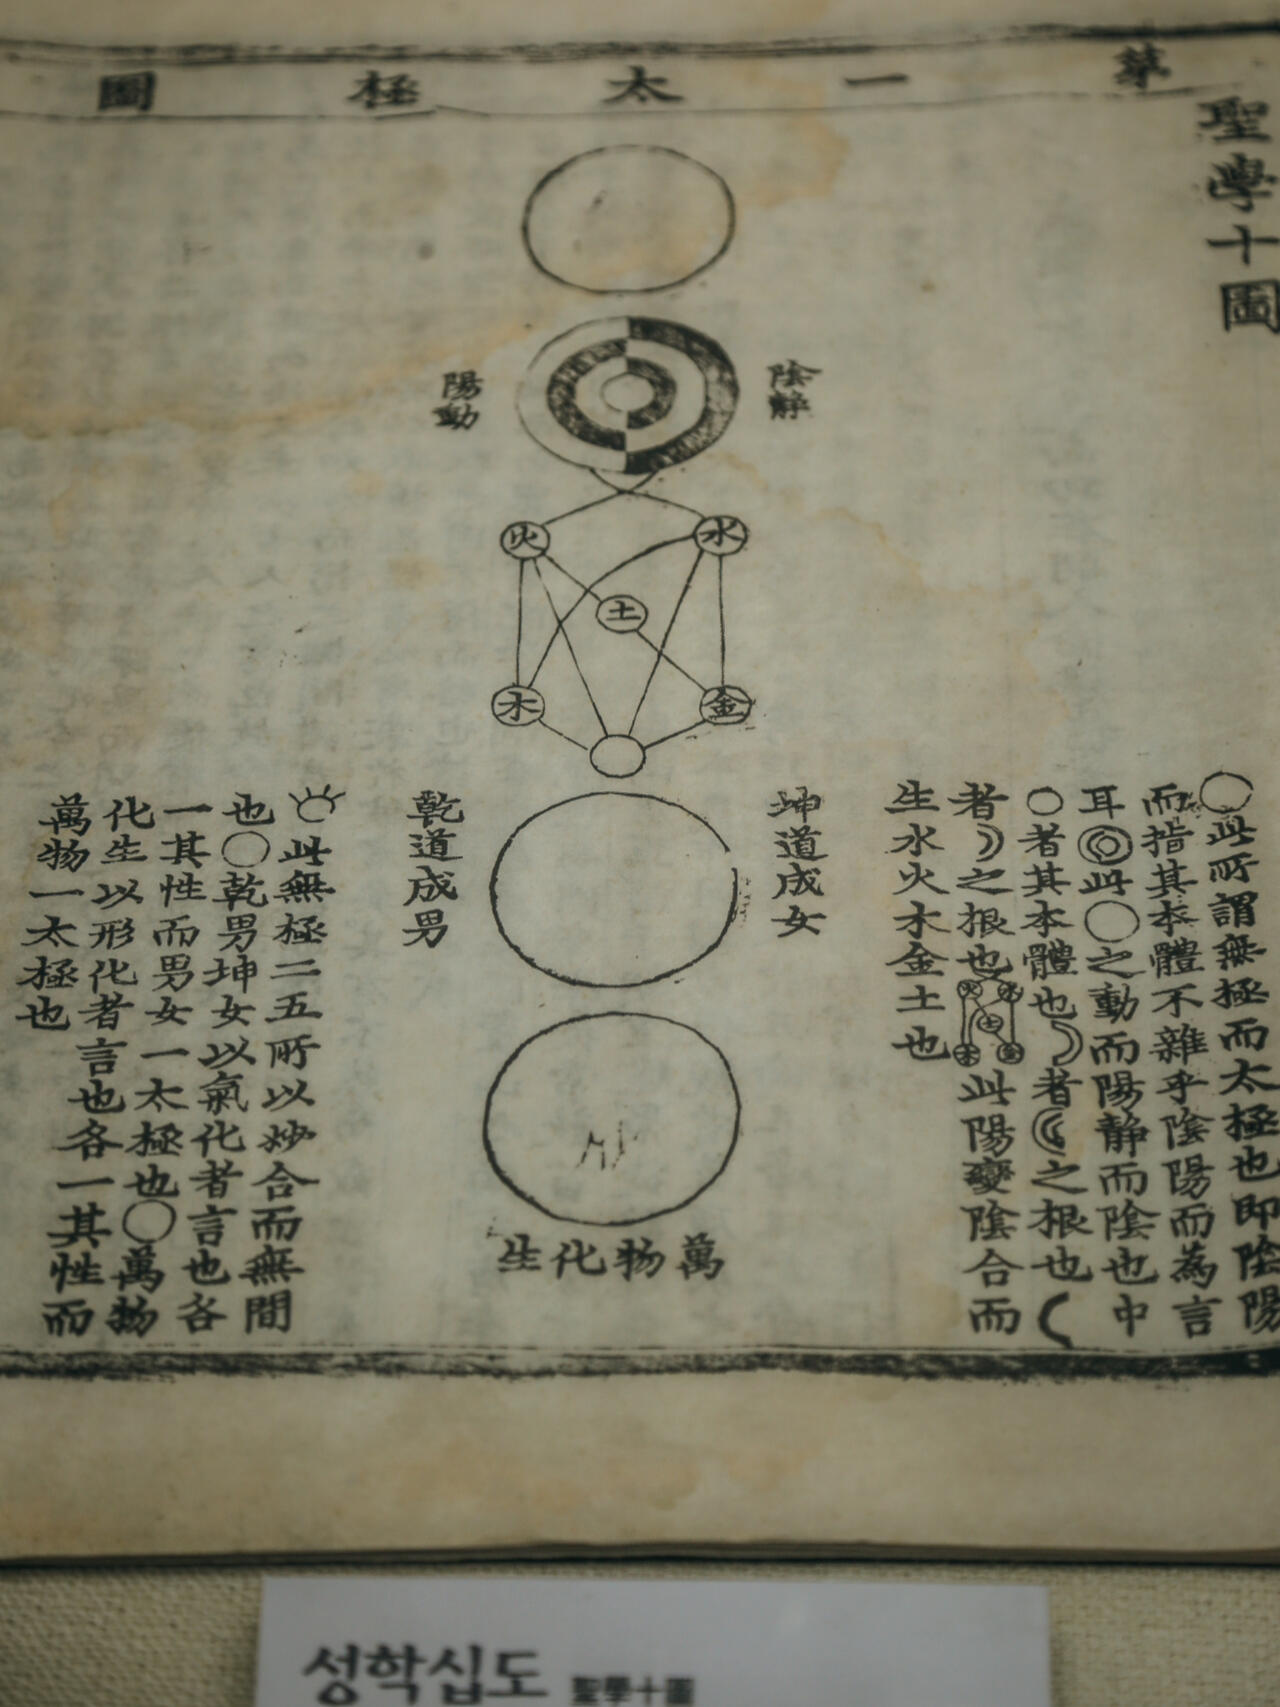 聖學十圖
第一太極圖
陰靜
陽動
火
水
土
木
金
坤道成女
乾道成男
萬物化生
○此所謂無極而太極也即陰陽
而指其本體不雜乎陰陽而為言
耳◎此○之動而陽靜而陰也中
○者其本體也者之根也
者之根也火水土木金此陽變陰合而
生水火木金土也
此無極二五所以妙合而無間
也○乾男坤女以氣化者言也各
一其性而男女一太極也○萬物
化生以形化者言也各一其性而
萬物一太極也
성학십도 聖學十圖